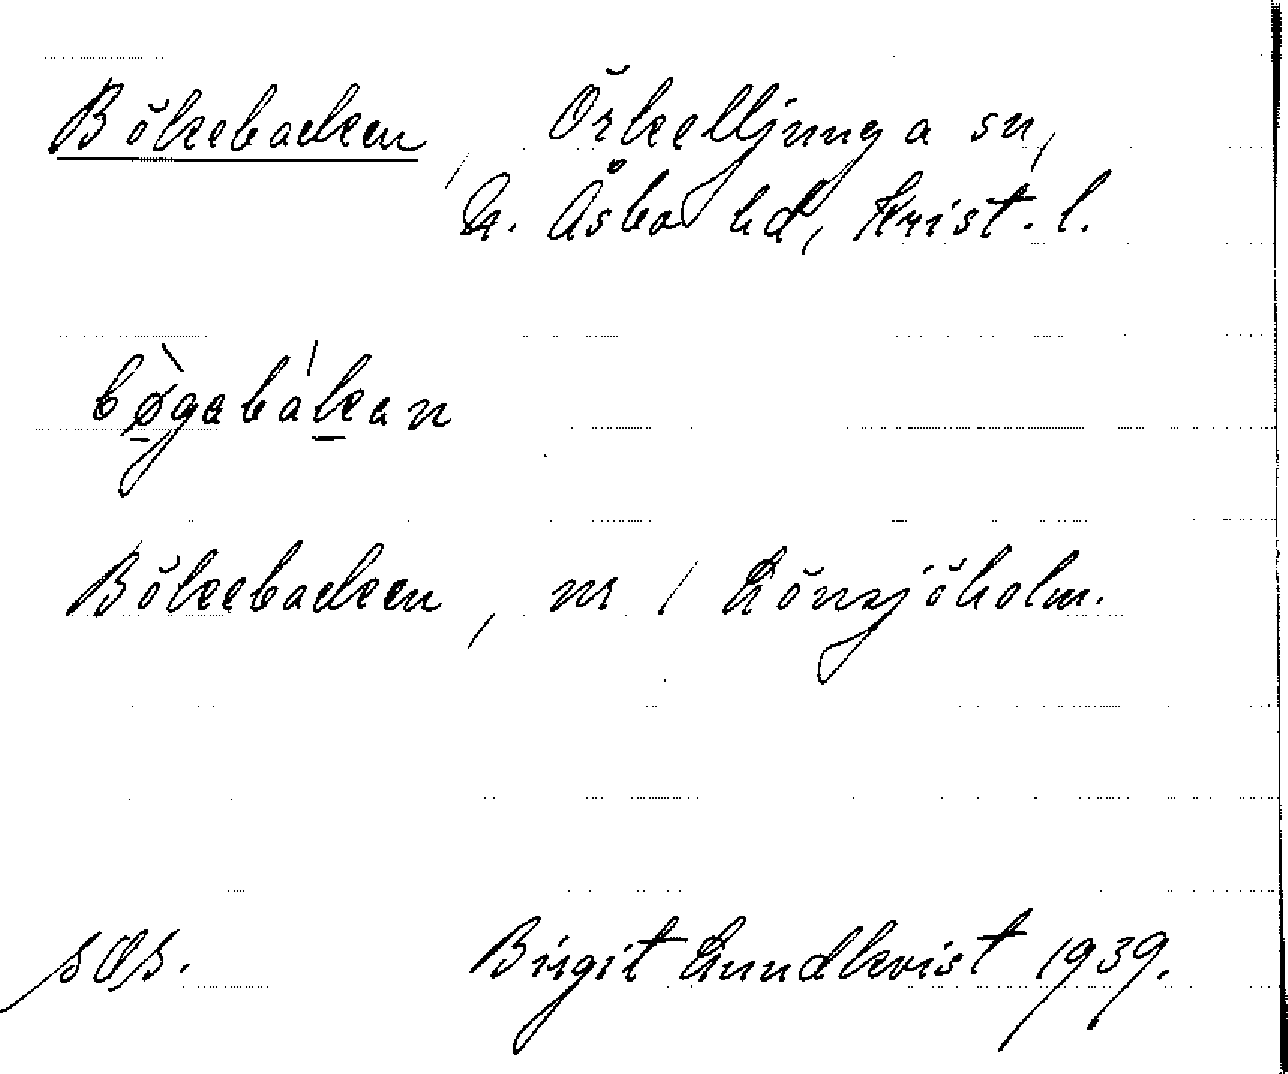 Bökebacken, Örkelljunga sn,
N. Åsbo hd, Krist. l.
bø̱̀gabáḵan
Bökebacken, nr / Lönsjöholm.
Birgit Lundkvist 1939.